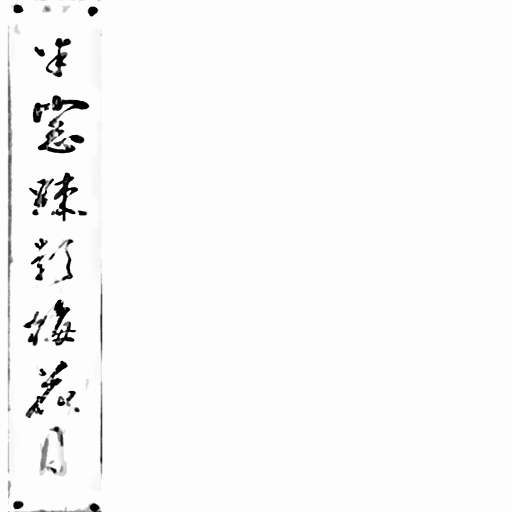 半窓疎影梅花月